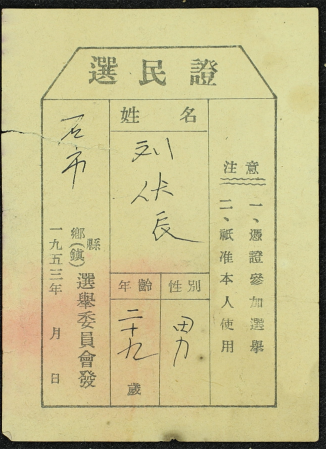 選民證
姓名
刘伏長
年齡
二十九
歲
性別
男
注意
一、憑證參加選舉
二、祇准本人使用
石市
縣
鄉(鎮)選舉委員會發
一九五三年 月 日